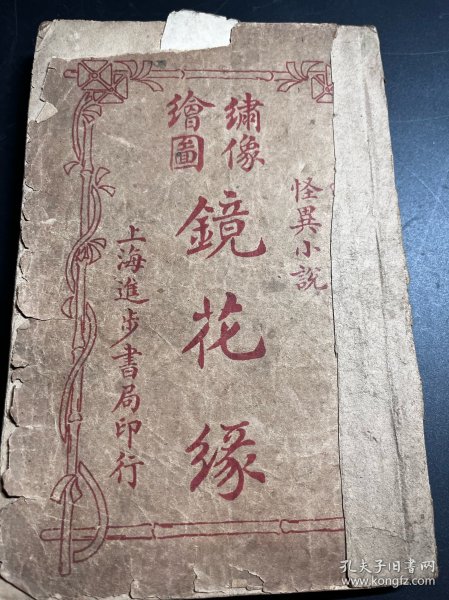 怪異小說
繡像
繪圖
鏡花緣
上海進步書局印行
孔夫子旧书网
www.kongfz.com